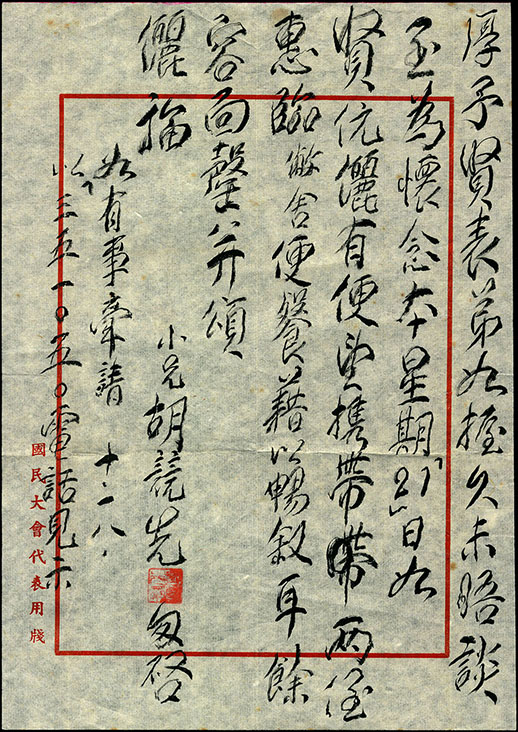 厚予賢表弟如握久未晤談
至為懷念本星期「21」日如
賢伉儷有便望携帶 兩侄
惠臨敝舍便餐藉以暢敘耳餘
容面罄㕥并頌
儷福
小兄胡競先 匆啓
十、二八、
如有事牽請
以三五一〇五〇電話見示
國民大會代表用牋